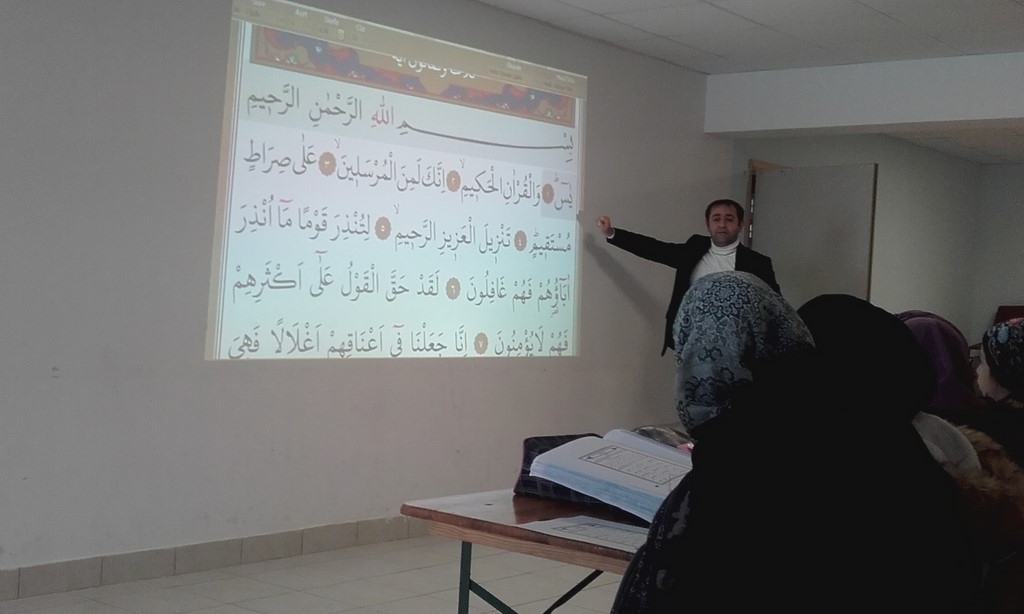 ثلاث وثمانون آية
بِسْمِ اللهِ الرَّحْمٰنِ الرَّحِيمِ
يٰسٓ ۚ ١ وَالْقُرْاٰنِ الْحَكِيمِۙ ٢ اِنَّكَ لَمِنَ الْمُرْسَلِينَۙ ٣ عَلٰى صِرَاطٍ
مُسْتَقِيمٍۜ ٤ تَنْزِيلَ الْعَزِيزِ الرَّحِيمِۙ ٥ لِتُنْذِرَ قَوْمًا مَٓا اُنْذِرَ
اٰبَٓاؤُهُمْ فَهُمْ غَافِلُونَ ٦ لَقَدْ حَقَّ الْقَوْلُ عَلٰٓى اَكْثَرِهِمْ
فَهُمْ لَايُؤْمِنُونَ ٧ اِنَّا جَعَلْنَا فٓى اَعْنَاقِهِمْ اَغْلَالًا فَهِىَ